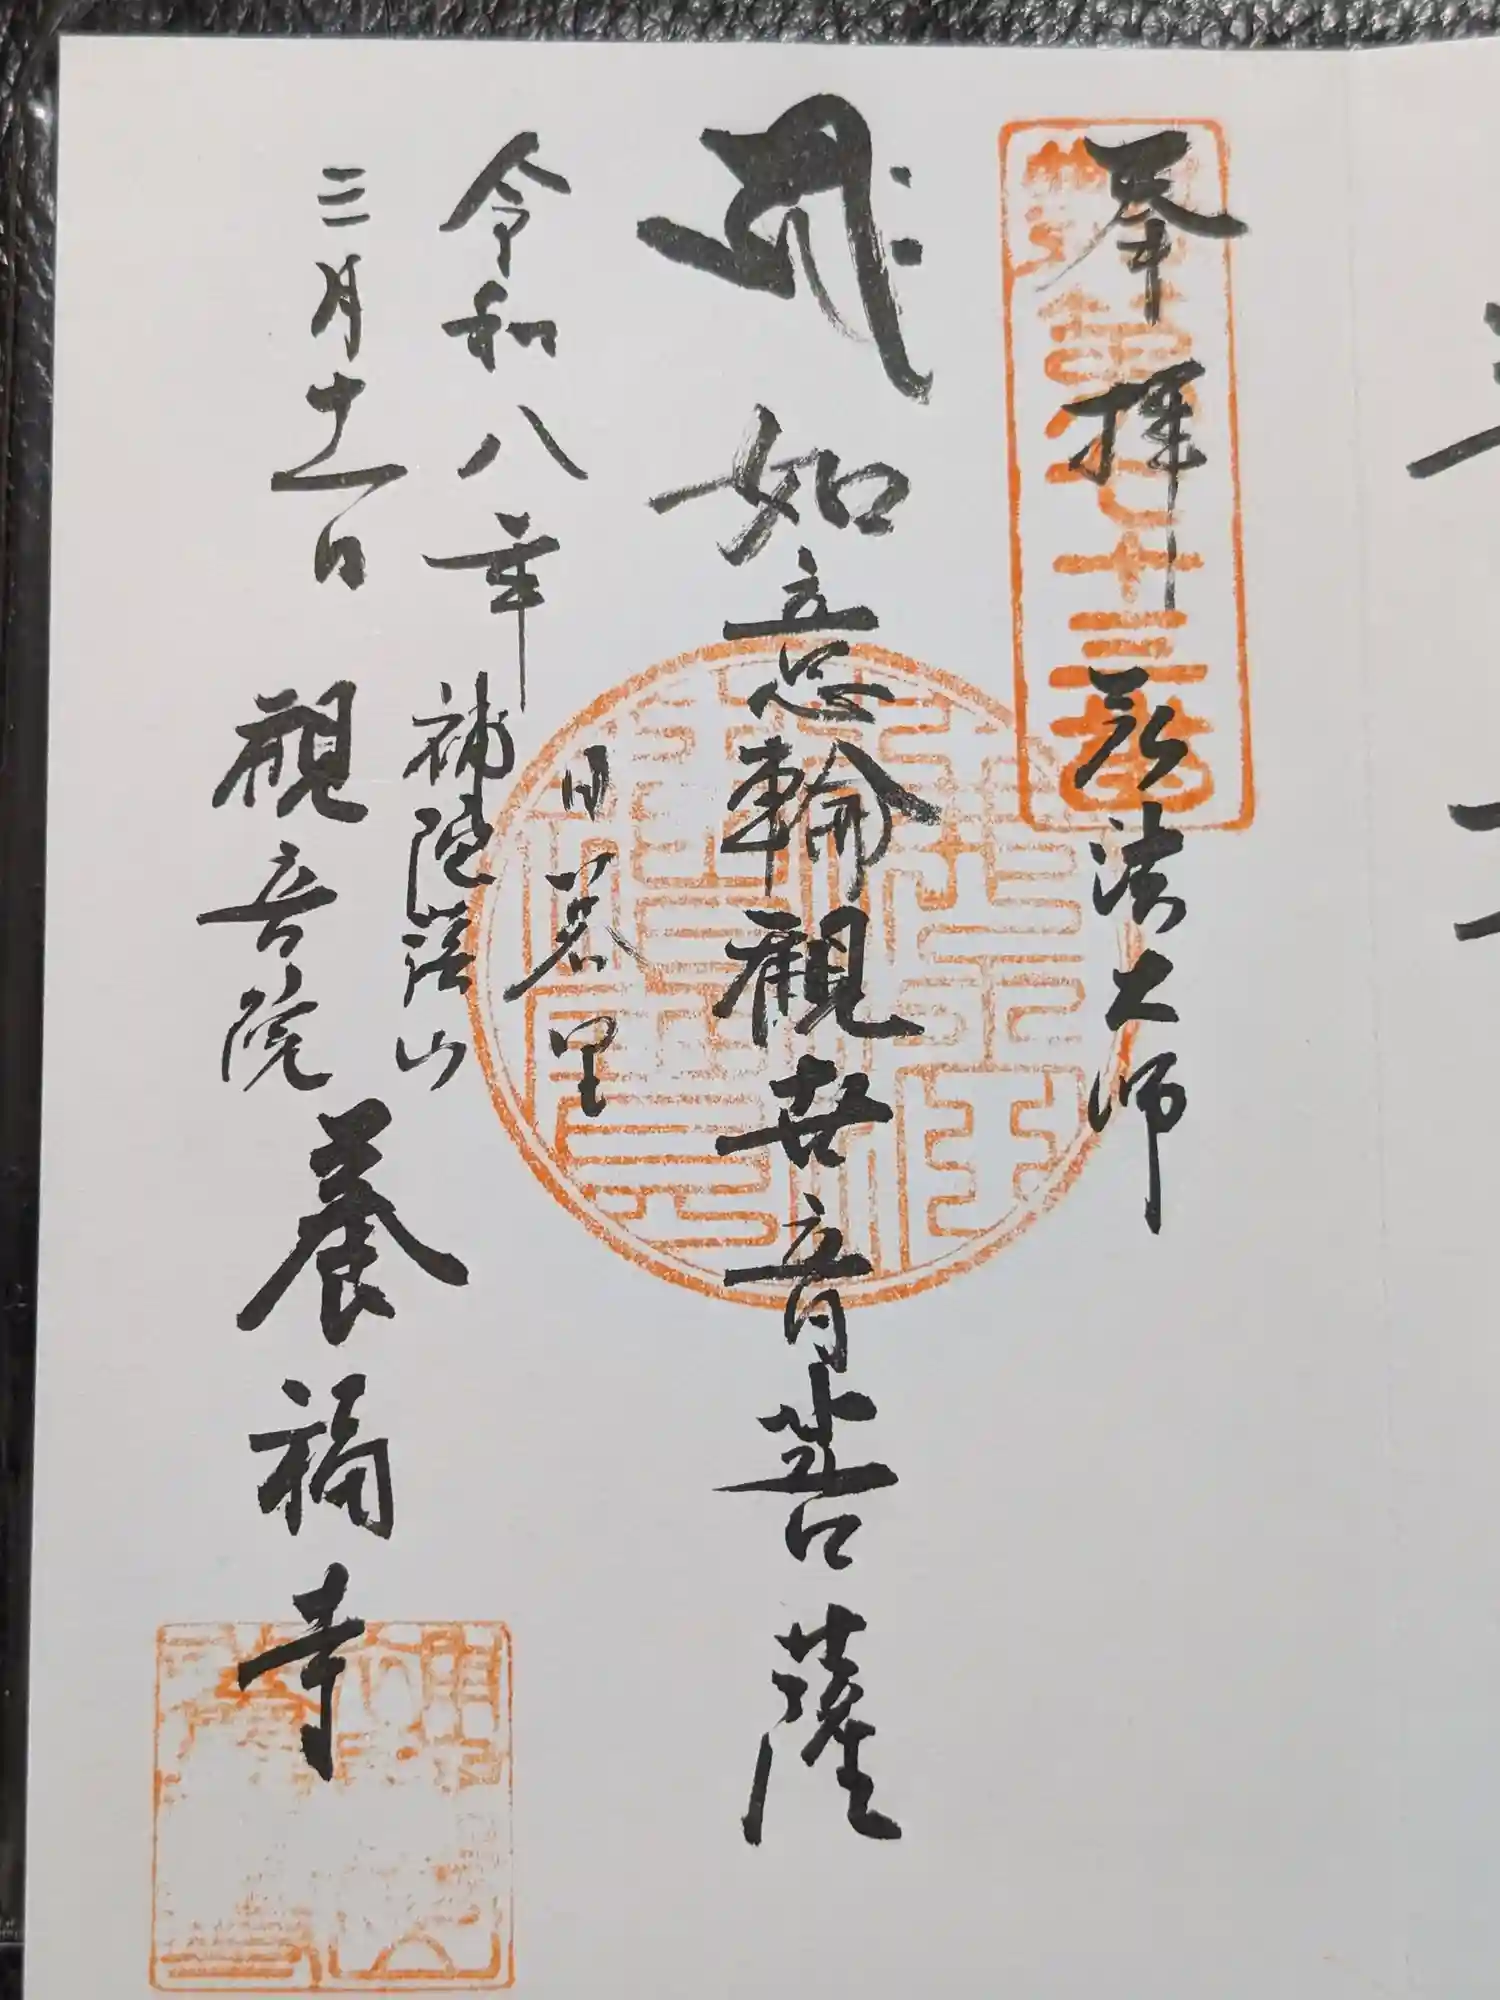 奉拝 弘法大師
第七十三番
如意輪觀世音菩薩
日暮里
令和八年
三月十一日
補陀落山
觀音院
養福寺